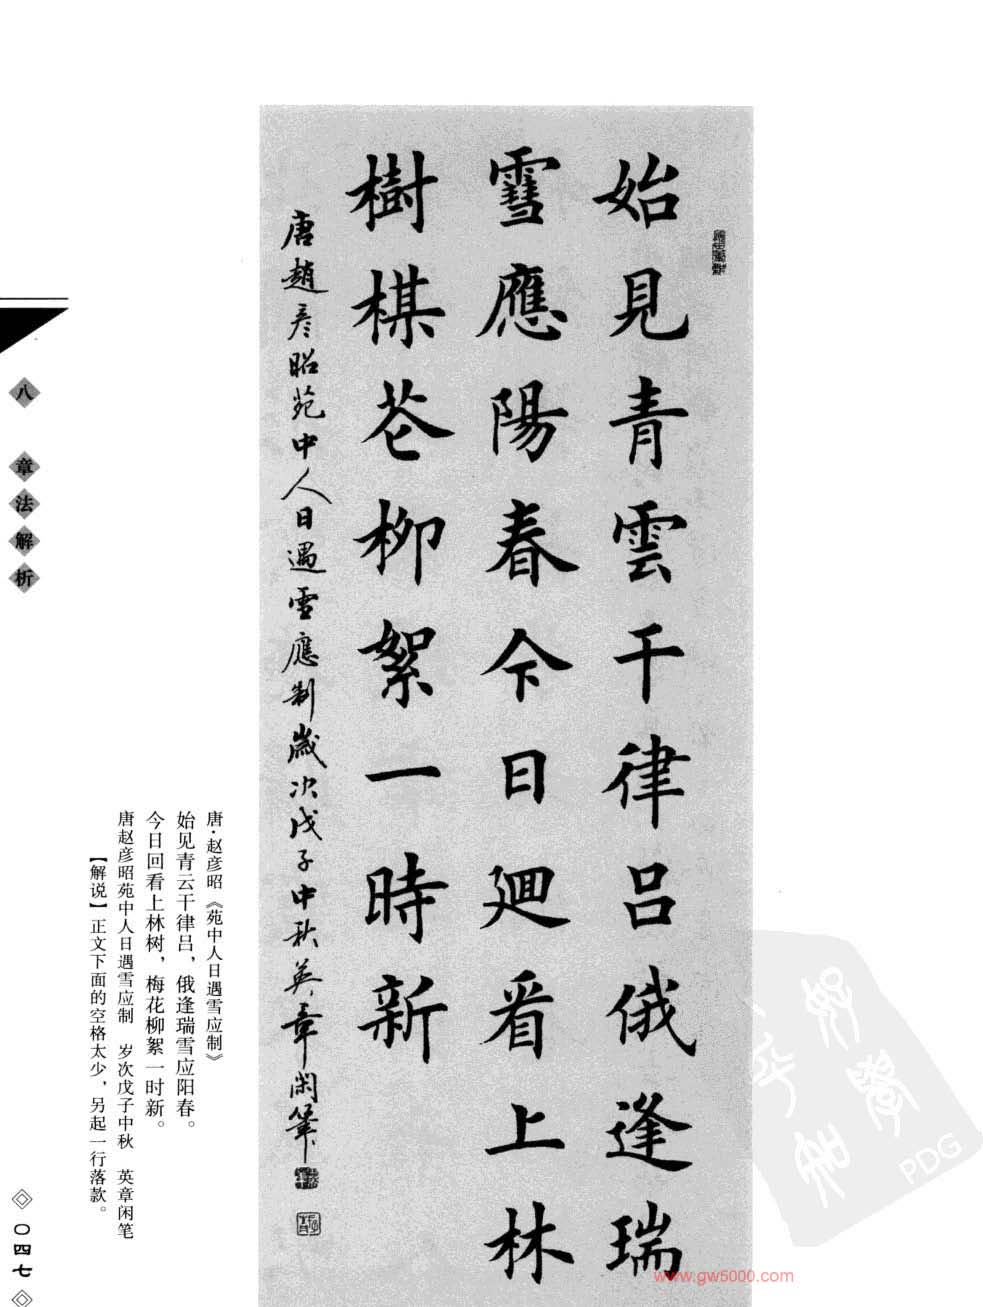 始見青雲干律呂俄逢瑞
雪應陽春今日廻看上林
樹楳花柳絮一時新
唐趙彦昭苑中人日遇雪應制歲次戊子中秋英章闲筆
唐·赵彦昭《苑中人日遇雪应制》
始见青云干律吕，俄逢瑞雪应阳春。
今日回看上林树，梅花柳絮一时新。
唐赵彦昭苑中人日遇雪应制　岁次戊子中秋　英章闲笔
【解说】正文下面的空格太少，另起一行落款。
八　章法解析
〇四七
PDG
www.gw5000.com